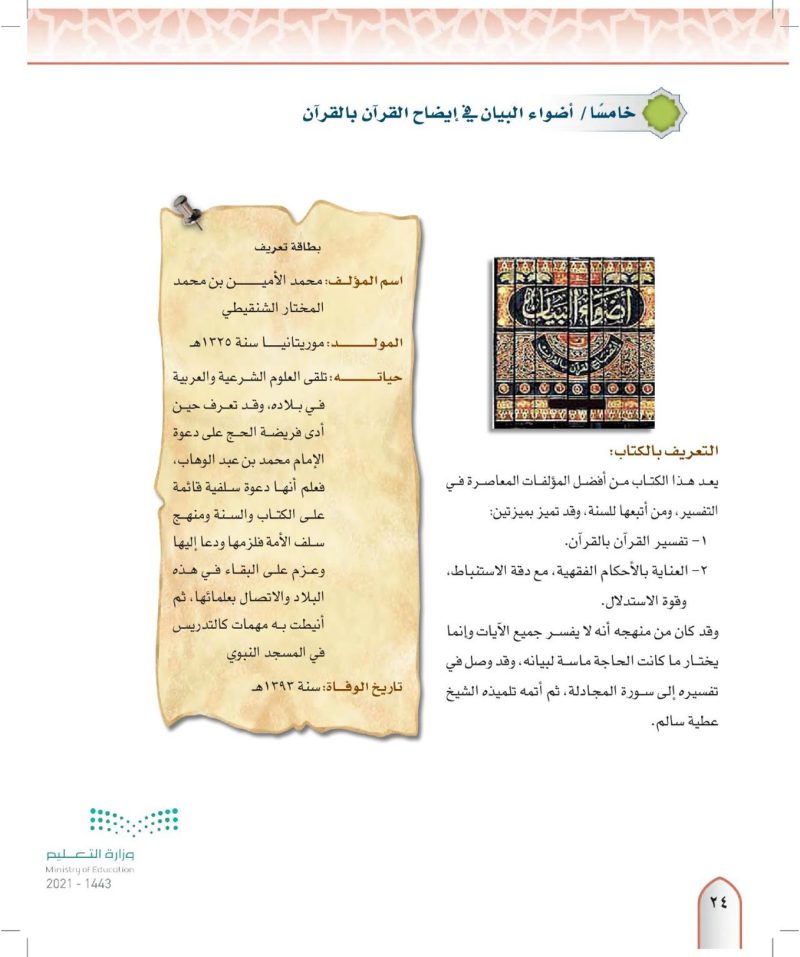 خامسًا/ أضواء البيان في إيضاح القرآن بالقرآن
بطاقة تعريف
اسم المؤلف: محمد الأمين بن محمد
المختار الشنقيطي
المولد: موريتانيا سنة ١٣٢٥هـ
حياته: تلقى العلوم الشرعية والعربية
في بلاده، وقد تعرف حين
أدى فريضة الحج على دعوة
الإمام محمد بن عبد الوهاب،
فعلم أنها دعوة سلفية قائمة
على الكتاب والسنة ومنهج
سلف الأمة فلزمها ودعا إليها
وعزم على البقاء في هذه
البلاد والاتصال بعلمائها، ثم
أنيطت به مهمات كالتدريس
في المسجد النبوي
تاريخ الوفاة: سنة ١٣٩٣هـ
أضواء البيان
في إيضاح القرآن بالقرآن
التعريف بالكتاب:
يعد هذا الكتاب من أفضل المؤلفات المعاصرة في
التفسير، ومن أتبعها للسنة، وقد تميز بميزتين:
١- تفسير القرآن بالقرآن.
٢- العناية بالأحكام الفقهية، مع دقة الاستنباط،
وقوة الاستدلال.
وقد كان من منهجه أنه لا يفسر جميع الآيات وإنما
يختار ما كانت الحاجة ماسة لبيانه، وقد وصل في
تفسيره إلى سورة المجادلة، ثم أتمه تلميذه الشيخ
عطية سالم.
وزارة التعليم
Ministry of Education
2021 - 1443
٢٤